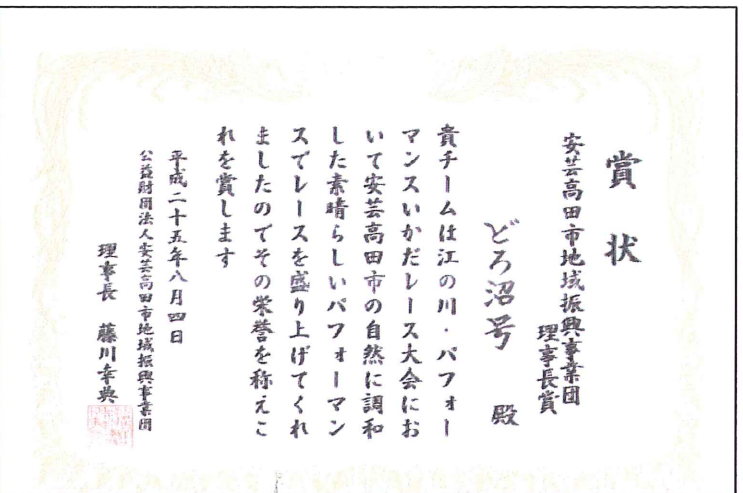 賞状
安芸高田市地域振興事業団
理事長賞
どろ沼号 殿
貴チームは江の川・パフォー
マンスいかだレース大会にお
いて安芸高田市の自然に調和
した素晴らしいパフォーマン
スでレースを盛り上げてくれ
ましたのでその栄誉を称えこ
れを賞します
平成二十五年八月四日
公益財団法人安芸高田市地域振興事業団
理事長 藤川幸典